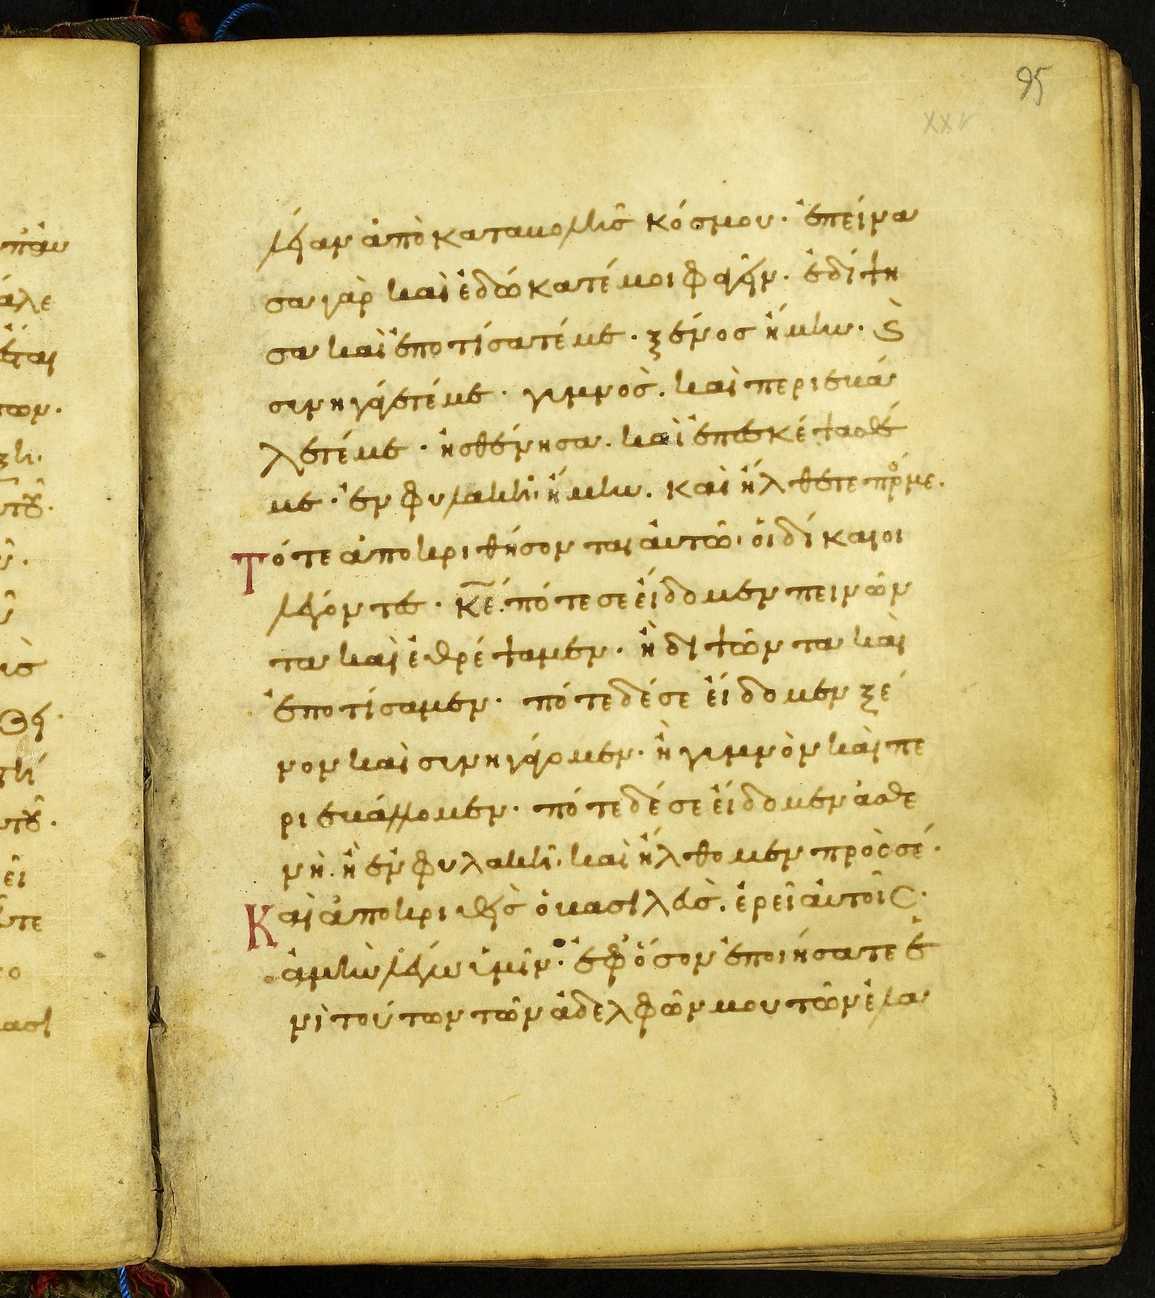 95
XXV
λείαν ἀπὸ καταβολῆς κόσμου· ἐπείνα
σα γὰρ καὶ ἐδώκατέ μοι φαγεῖν· ἐδίψη
σα καὶ ἐποτίσατέ με· ξένος ἤμην· ϗ
συνηγάγετέ με· γυμνὸς· καὶ περιεβά
λετέ με· ἠσθένησα· καὶ ἐπεσκέψασθέ
με· ἐν φυλακῆ· ἤμην· καὶ ἤλθετε πρός με·
Τότε ἀποκριθήσονται αὐτῶ· οἱ δίκαιοι
λέγοντες· κε̅· πότε σε εἴδομεν πεινῶν
τα καὶ ἐθρέψαμεν· ἢ διψῶντα καὶ
ἐποτίσαμεν· πότε δέ σε εἴδομεν ξέ
νον καὶ συνηγάγομεν· ἢ γυμνὸν καὶ πε
ριεβάλλομεν· πότε δέ σε εἴδομεν ἀσθε
νῆ· ἢ ἐν φυλακῆ· καὶ ἤλθομεν πρὸς σέ·
Καὶ ἀποκριθεὶς ὁ βασιλεὺς· ἐρεῖ αὐτοῖς·
ἀμὴν λέγω ὑμῖν· ἐφ' ὅσον ἐποιήσατε ἑ
νὶ τούτων τῶν ἀδελφῶν μου τῶν ἐλα